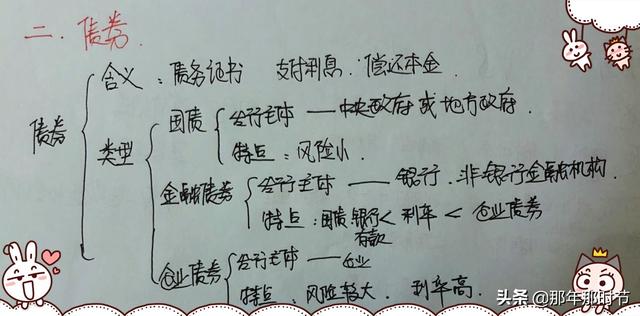 二.债券.
含义:债务证书 支付利息.偿还本金.
债券
类型
国债
发行主体——中央政府或地方政府.
特点:风险小.
金融债券
发行主体——银行.非银行金融机构.
特点:国债 银行存款<利率<企业债券
企业债券
发行主体——企业
特点:风险较大. 利率高.
头条@那年那时节